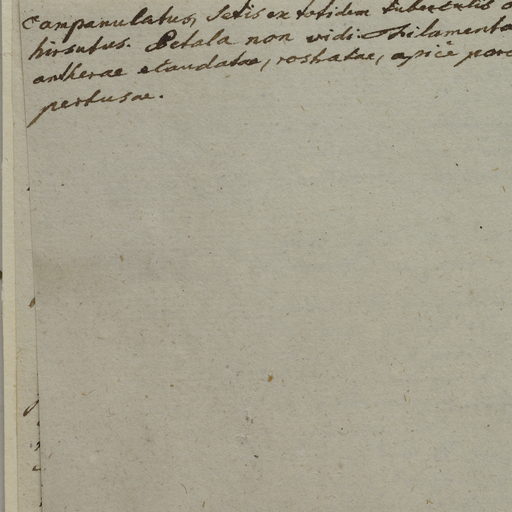 campanulatus, setis ex totidem tuberculis
hirsutus. Petala non vidi. Filamenta
antherae ecaudatae, rostratae, apice
pertusae.